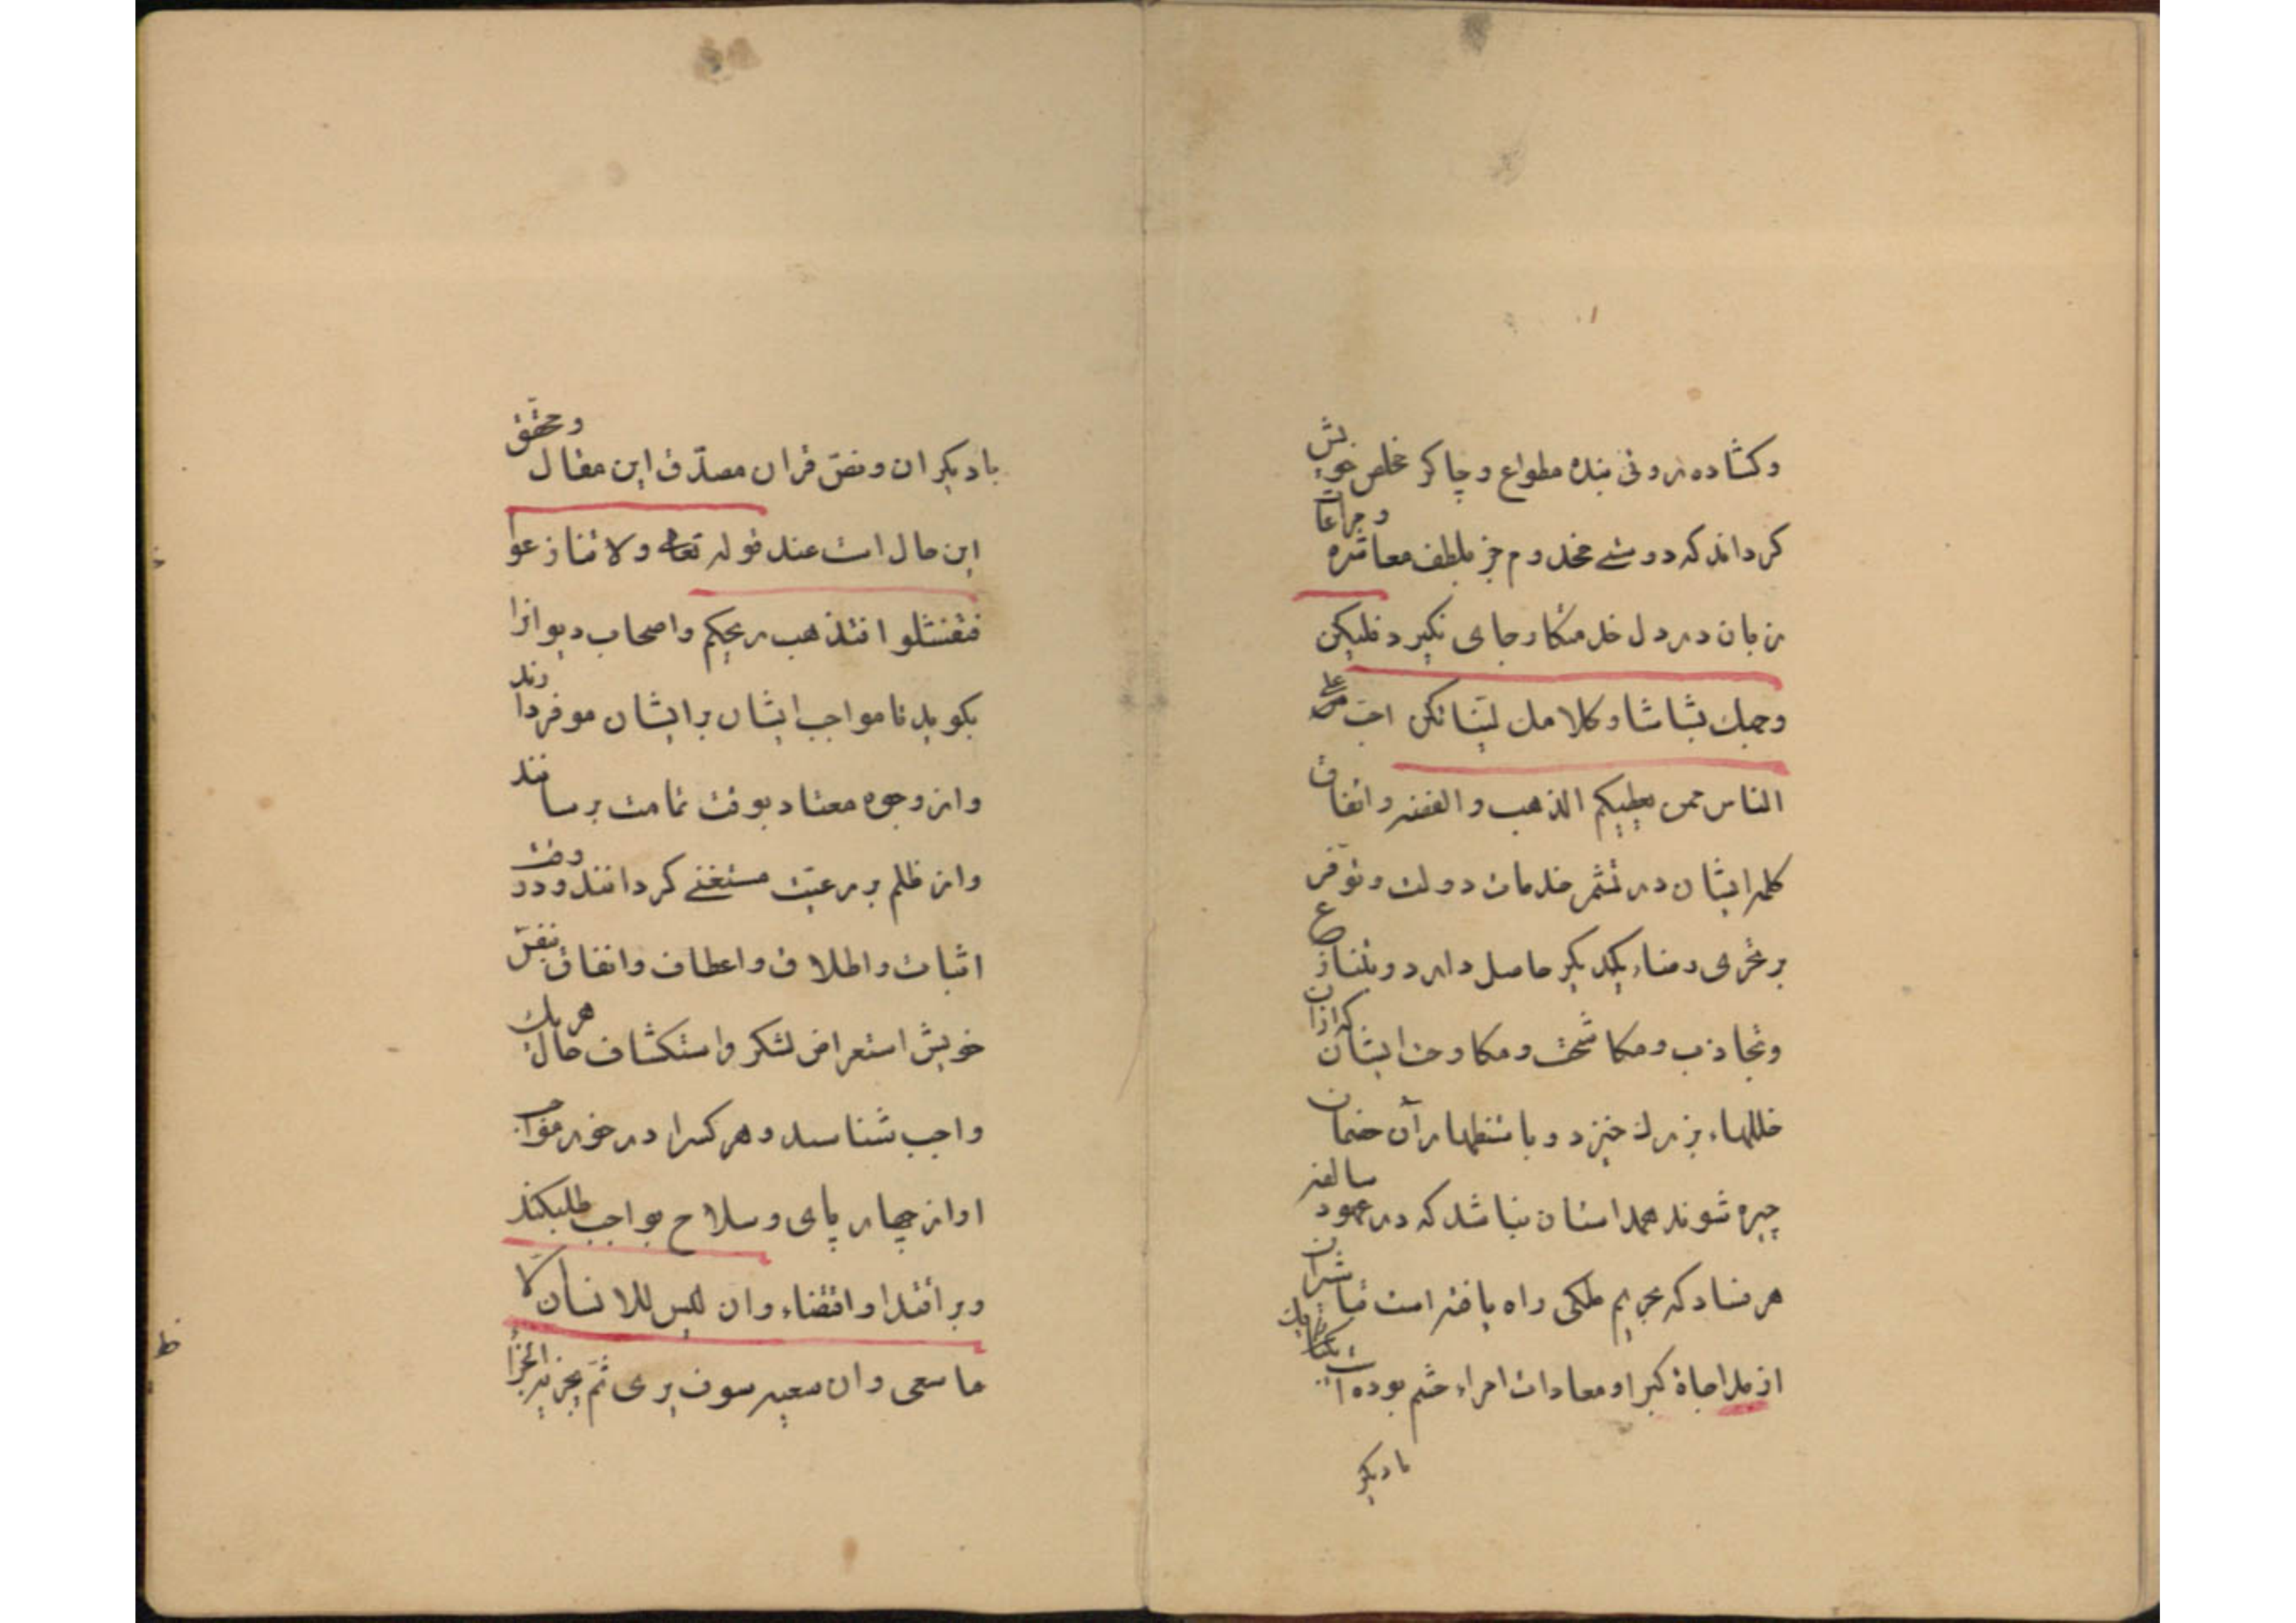 وکشاده روئی بنده مطواع وچاکر مخلص خویش
کرداند که دوستی مخدوم جز بلطف معاشره ومراعات
زبان در دل خدمتکار جای نکیرد فلیکن
وجهك بشاشا وکلامك لینا تکن احب علی
الناس ممن یعطیکم الذهب والفضه واتفاق
کلمه ایشان در تثمر خدمات دولت وتوفر
بر تحری رضاء یکدیکر حاصل دارد وبتنازع
وتجاذب ومکاشحت ومکاوحت ایشان که ازان
خللهاء بزرك خیزد وباستظهار آن خصمان
چیره شوند همداستان نباشد که در عهود سالفه
هر فساد که بحریم ملکی راه یافته است
از مداجاة کبرا ومعادات امراء حشم بوده است
بادیکر
بادیکران ونص قران مصدق این مقال ومحقق
این حال است عند قوله تعالی ولا تنازعوا
فتفشلوا فتذهب ریحکم واصحاب دیوانرا
بکوید تا مواجب ایشان برایشان موفر دارند
واز وجوه معتاد بوقت تمامت برسانند
واز ظلم بر رعیت مستغنی کردانند ودر وقت
اثبات واطلاق واعطاف وانفاق بنفس
خویش استعراض لشکر واستکشاف حال هر یك
واجب شناسد وهر کسرا در خور مواجب
او از چهار پای وسلاح بواجب طلب کند
وبر اقتدا واقتضاء وان لیس للانسان الا
ما سعی وان سعیه سوف یری ثم یجزیه الجزا
ط